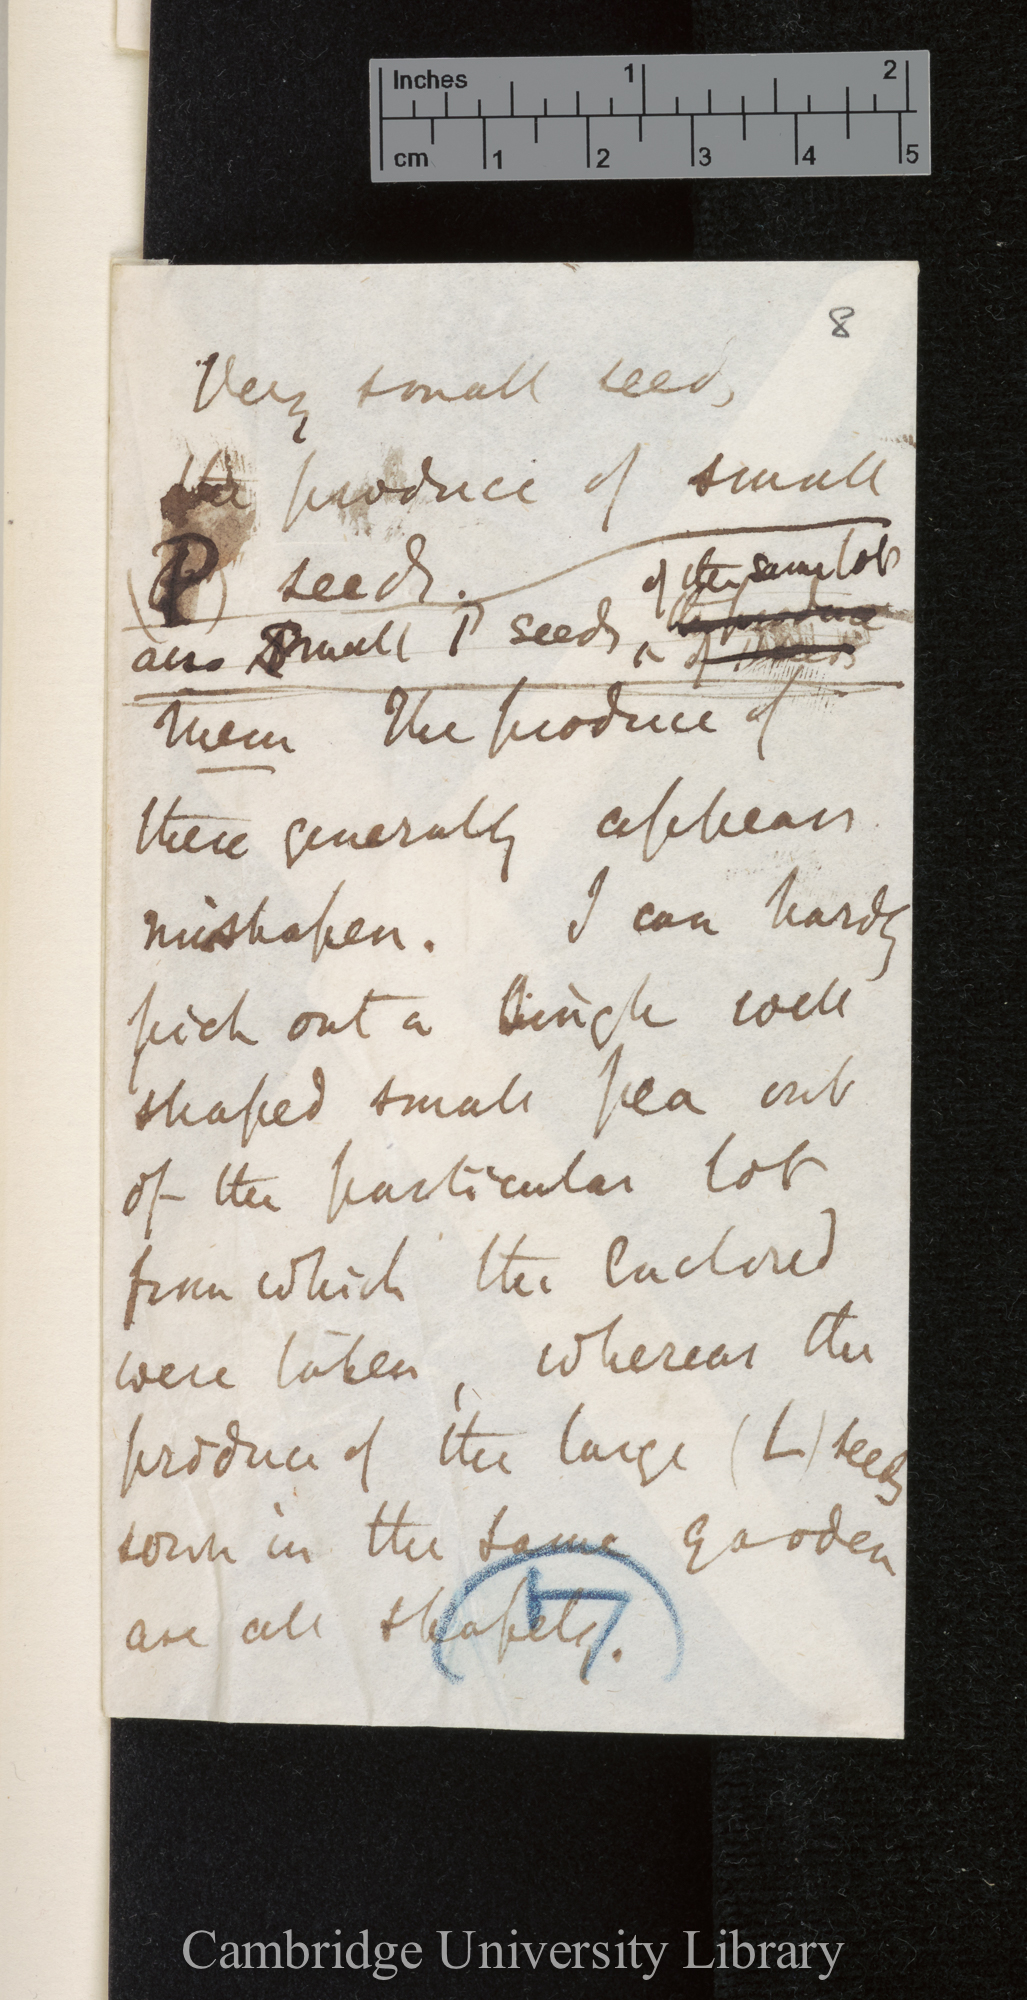 Inches 1 2
cm 1 2 3 4 5
8
Very small seed,
the produce of small
(P) seeds.
of the same lot
also small P seeds,
Mem The produce of
these generally appears
misshapen. I can hardly
pick out a single well
shaped small pea out
of the particular lot
from which the enclosed
were taken, whereas the
produce of the large (L) seeds
sown in the same garden
are all shapely.
7
Cambridge University Library